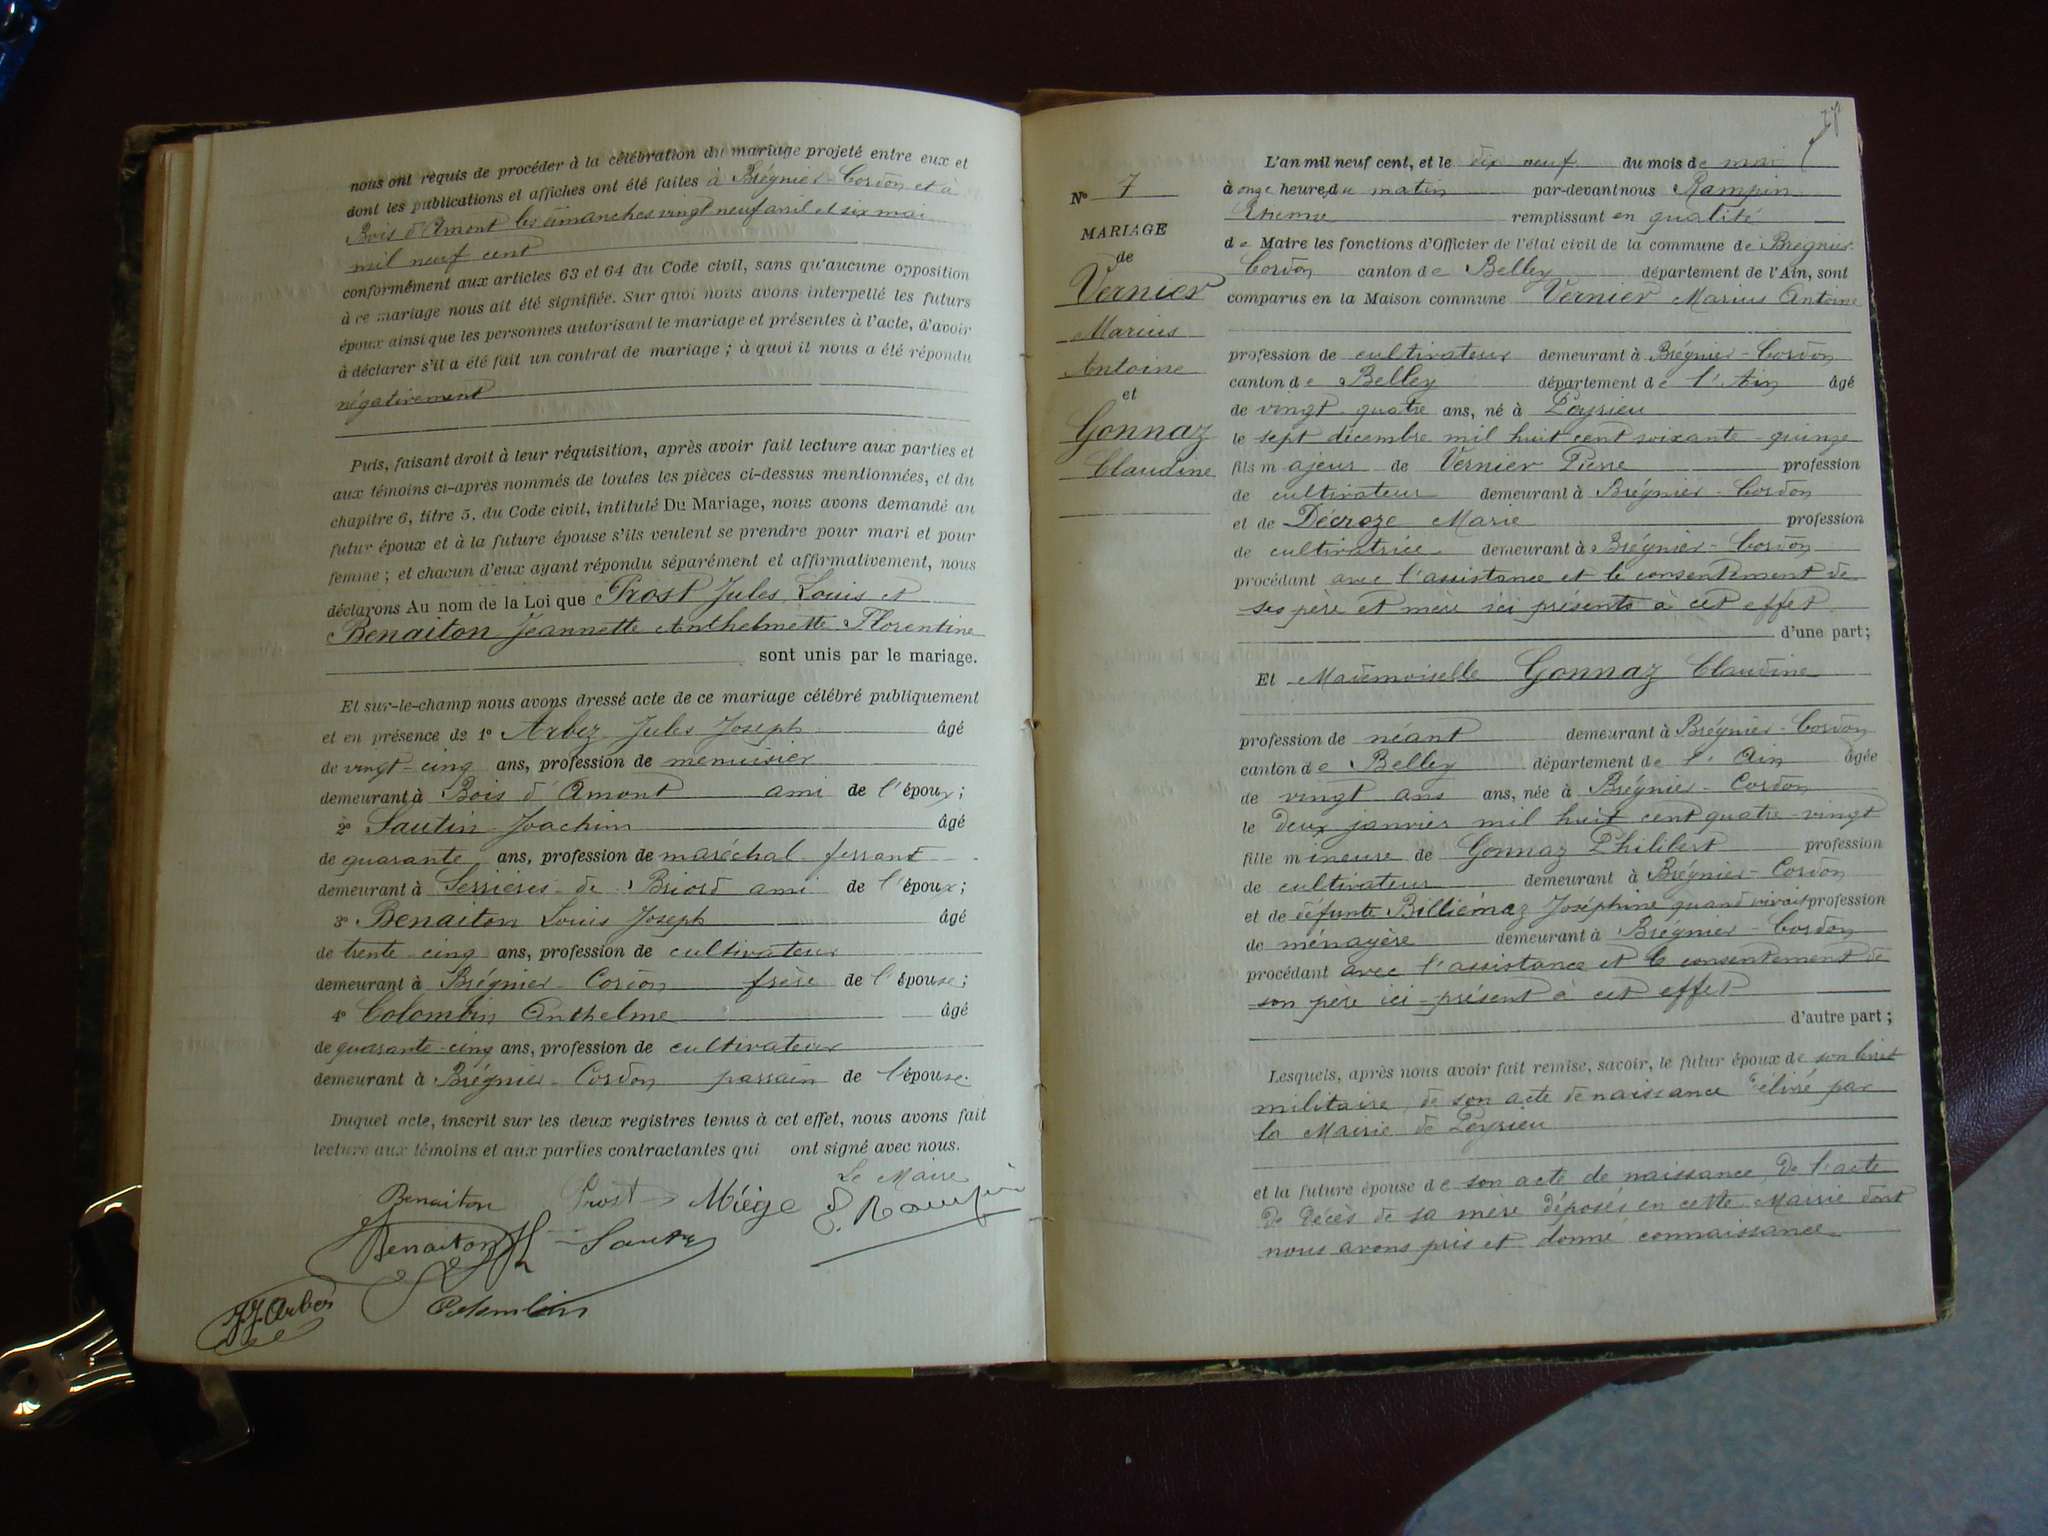 nous ont requis de procéder à la célébration du mariage projeté entre eux et
dont les publications et affiches ont été faites à Brégnier-Cordon et à
Bois d'Amont les dimanches vingt neuf avril et six mai
mil neuf cent
conformément aux articles 63 et 64 du Code civil, sans qu'aucune opposition
à ce mariage nous ait été signifiée. Sur quoi nous avons interpellé les futurs
époux ainsi que les personnes autorisant le mariage et présentes à l'acte, d'avoir
à déclarer s'il a été fait un contrat de mariage ; à quoi il nous a été répondu
négativement
Puis, faisant droit à leur réquisition, après avoir fait lecture aux parties et
aux témoins ci-après nommés de toutes les pièces ci-dessus mentionnées, et du
chapitre 6, titre 5, du Code civil, intitulé Du Mariage, nous avons demandé au
futur époux et à la future épouse s'ils veulent se prendre pour mari et pour
femme ; et chacun d'eux ayant répondu séparément et affirmativement, nous
déclarons Au nom de la Loi que Prost Jules Louis et
Benaiton Jeannette Anthelmette Florentine
sont unis par le mariage.
Et sur-le-champ nous avons dressé acte de ce mariage célébré publiquement
et en présence de 1º Arbez Jules Joseph âgé
de vingt-cinq ans, profession de menuisier
demeurant à Bois d'Amont ami de l'époux ;
2º Sautin Joachim âgé
de quarante ans, profession de maréchal ferrant
demeurant à Serrières de Briord ami de l'époux ;
3º Benaiton Louis Joseph âgé
de trente-cinq ans, profession de cultivateur
demeurant à Brégnier-Cordon frère de l'épouse ;
4º Colombin Anthelme âgé
de quarante-cinq ans, profession de cultivateur
demeurant à Brégnier-Cordon parrain de l'épouse.
Duquel acte, inscrit sur les deux registres tenus à cet effet, nous avons fait
lecture aux témoins et aux parties contractantes qui ont signé avec nous.
Le Maire
Benaiton Prost Miège E. Rampin
Benaiton
JJ Arbez Colombin
Nº 7
MARIAGE
de
Vernier
Marius
Antoine
et
Gonnaz
Claudine
L'an mil neuf cent, et le dix neuf du mois de mai
à onze heures du matin par-devant nous Rampin
Etienne remplissant en qualité
de Maire les fonctions d'Officier de l'état civil de la commune de Brégnier
Cordon canton de Belley département de l'Ain, sont
comparus en la Maison commune Vernier Marius Antoine
profession de cultivateur demeurant à Brégnier-Cordon
canton de Belley département de l'Ain âgé
de vingt-quatre ans, né à Peyrieu
le sept décembre mil huit cent soixante-quinze
fils majeur de Vernier Pierre profession
de cultivateur demeurant à Brégnier-Cordon
et de Décroze Marie profession
de cultivatrice demeurant à Brégnier-Cordon
procédant avec l'assistance et le consentement de
ses père et mère ici présents à cet effet
d'une part ;
Et Mademoiselle Gonnaz Claudine
profession de néant demeurant à Brégnier-Cordon
canton de Belley département de l'Ain âgée
de vingt ans ans, née à Brégnier-Cordon
le deux janvier mil huit cent quatre-vingt
fille mineure de Gonnaz Philibert profession
de cultivateur demeurant à Brégnier-Cordon
et de défunte Billiémaz Joséphine quand vivait profession
de ménagère demeurant à Brégnier-Cordon
procédant avec l'assistance et le consentement de
son père ici présent à cet effet
d'autre part ;
Lesquels, après nous avoir fait remise, savoir, le futur époux de son livret
militaire, de son acte de naissance délivré par
la Mairie de Peyrieu
et la future épouse de son acte de naissance, de l'acte
de décès de sa mère déposés en cette Mairie dont
nous avons pris et donné connaissance